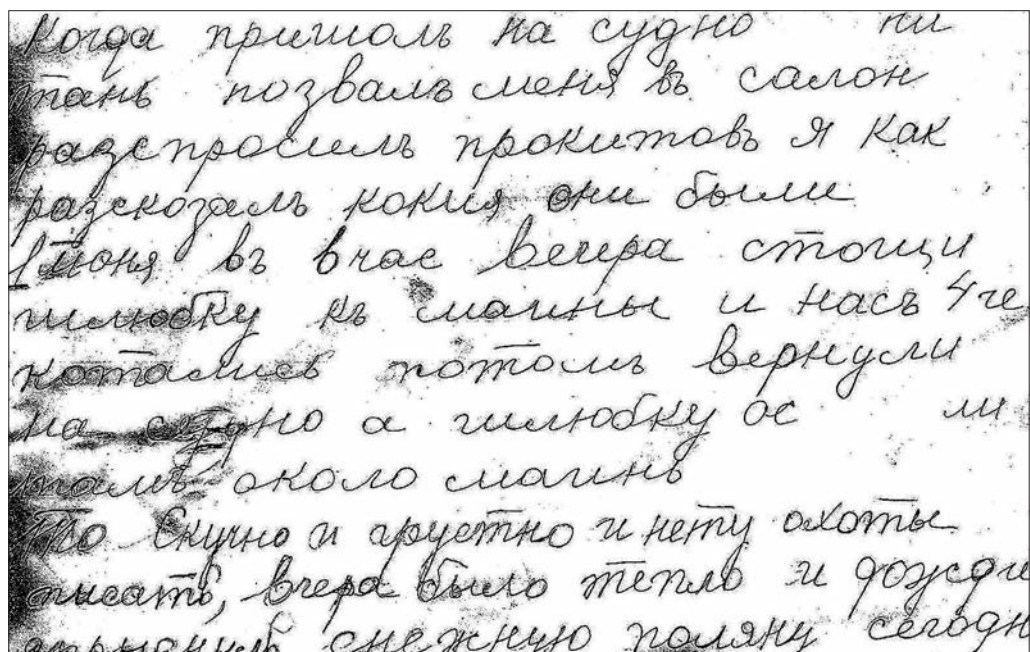 Когда пришолъ на судно
тань позвалъ меня въ салон
разспросилъ прокитовъ я как
разскозалъ кокия они были
1 июня въ вчас вечера стощи
шлюбку къ маины и насъ 4 че
котались потомъ вернули
на судно а шлюбку ос ли
тамъ около маинь
Скучно и грустно и нету охоты
писать, вчера было тепло и
снежную поляну сегодн